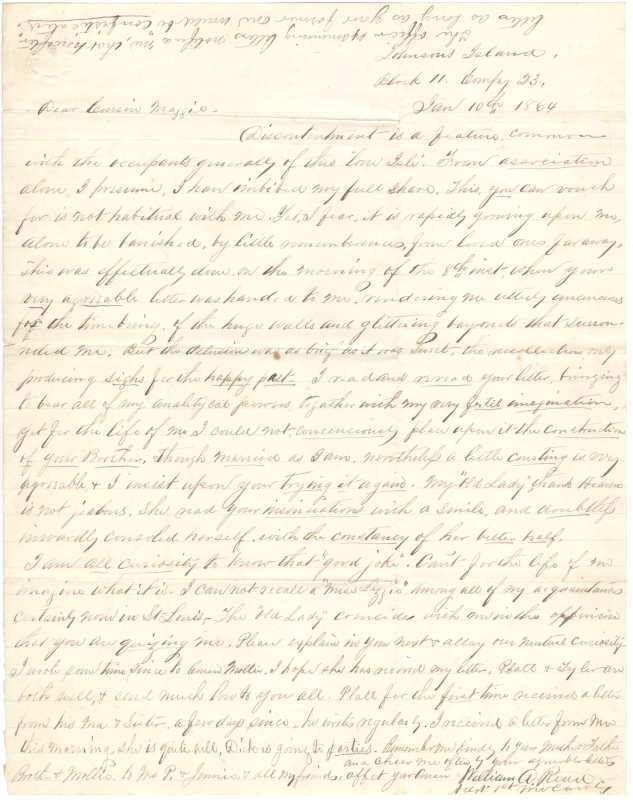 Johnson's Island,
Block 11. Compy 23.
Jan 10th 1864
Dear Cousin Maggie.
Discontentment is a feature, common
with the occupants generally of this "lone Isle". From association
alone, I presume, I han imbibed my full share. This, you can vouch
for is not habitual with me. Yet, I fear, it is rapidly growing upon me,
alone to be banished, by little remembrances, from loved ones far away.
This was effectually done, on the morning of the 8th inst. when your
very agreeable letter was handed to me. rendering me utterly unconscious
for the time being, of the huge walls and glittering bayonets that surrou-
nded me. But the delusion was as brief as it was sweet, the recollection only
producing sighs for the happy past. I read and reread your letter, bringing
to bear all of my analytical powers together with my very fertil imagination,
yet for the life of me I could not conscienciously place upon it the construction
of your Brother, though married as I am. nevertheless a little courting is very
agreeable & I insist upon your trying it again. My "Old Lady" Frank
is not jealous. She read your insinuations with a smile, and doubtless
inwardly consoled herself, with the constancy of her better half.
I am all curiosity to know that "good joke". Can't for the life of me
imagine what it is. I can not recall a "Miss Lizzie" among all of my acquaintances
certainly none in St. Louis. The "Old Lady" coincides with me in the oppinion
that you are quizing me. Please explain in your next & allay our mutual curiosity.
I wrote some time since to Cousin Mollie. I hope she has received my letter. Platt & Tyler are
both well, & send much love to you all. Platt for the first time received a letter
from his Ma & Sister, a few days since. he writes regularly. I received a letter from Mc
this morning, she is quite well, Dick is going to parties. Remember me kindly to your Mother & Father
Broth & Mollie, to Mrs P. & Jennie & all my friends, and cheer me often by your agreeable letters
affect yours
William A. Read
The officer examining letters notifies me, that hereafter
letters as long as your former one would be confiscated.